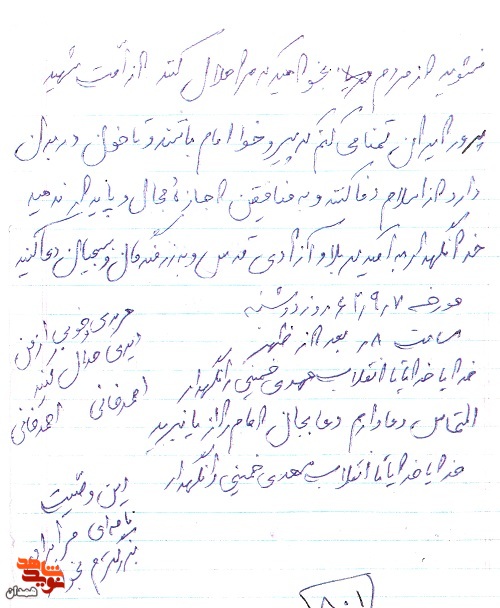 میشوید از مردم میخواهم که مرا حلال کنند از امت شهید
پرور ایران تمنا می کنم که پیرو خط امام باشند و تا خون در بدن
دارد از اسلام دفاع کنند و به منافقین اجازهٔ مجال و پایداری ندهید
خدا نگهدار به امید کربلا و آزادی قدس و به رزمندگان و بسیجیان دعا کنید
مورخه ۶۲/۹/۷ روز دوشنبه
ساعت ۸ بعد از ظهر
خدایا خدایا تا انقلاب مهدی خمینی را نگهدار
التماس دعا دارم دعا بجان امام را از یاد نبرید
خدایا خدایا تا انقلاب مهدی خمینی را نگهدار
هر بدی و خوبی از من
دیدی حلال کنید
احمد خانی احمد خانی
این وصیت
نامه ای مرا برای
بخو
نوید شاهد
همدان
۸۰۱